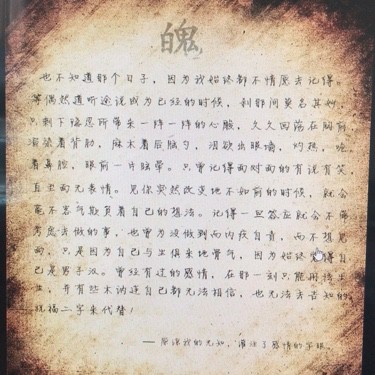 魄
也不知道那个日子，因为我始终都不情愿去记得。
等偶然道听途说成为已经的时候，刹那间莫名其妙，
只剩下隐忍所带来一阵一阵的心酸，久久回荡在胸前
着背肋，麻木着后脑勺，泪欲出眼墙，灼热，
着鼻腔，眼前一片眩晕。只曾记得面对面的有说有笑
直至面无表情。见你突然改变地不如前的时候，就会
毫不客气欺负着自己的想法。记得一旦答应就会不
考虑去做的事，也曾为没做到而内疚自责，而不想见
面，只是因为自己与生俱来地骨气，因为始终觉得自
己是男子汉。曾经有过的感情，在那一刻只能用
，并有些木讷连自己都无法相信，也无法去告知的
祝福二字来代替！
——原谅我的无知，灌注了感情的字眼